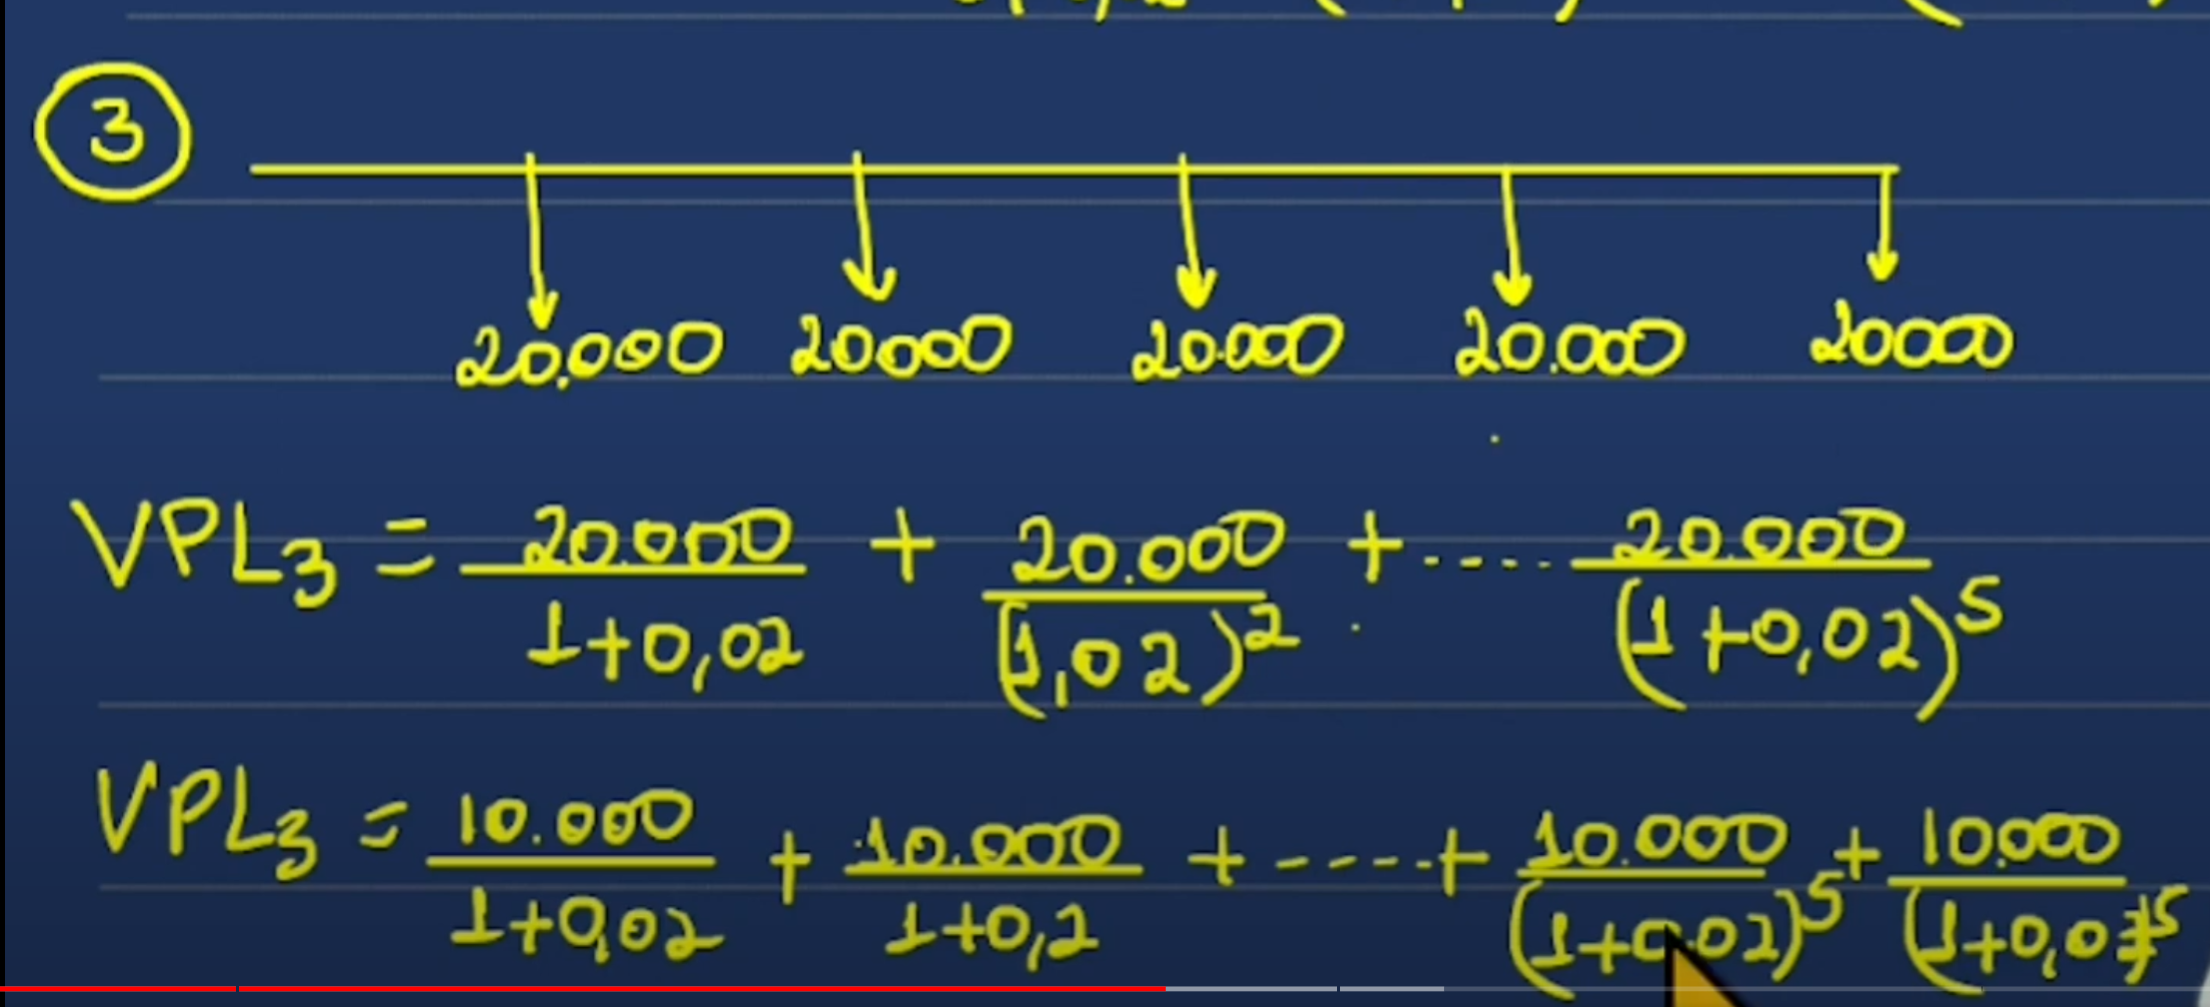 3
20.000 20000 20.000 20.000 20000
VPL3 = 20.000/1+0,02 + 20.000/(1,02)^2 + .... 20.000/(1+0,02)^5
VPL3 = 10.000/1+0,02 + 10.000/1+0,2 + ----+ 10.000/(1+0,02)^5 + 10.000/(1+0,0